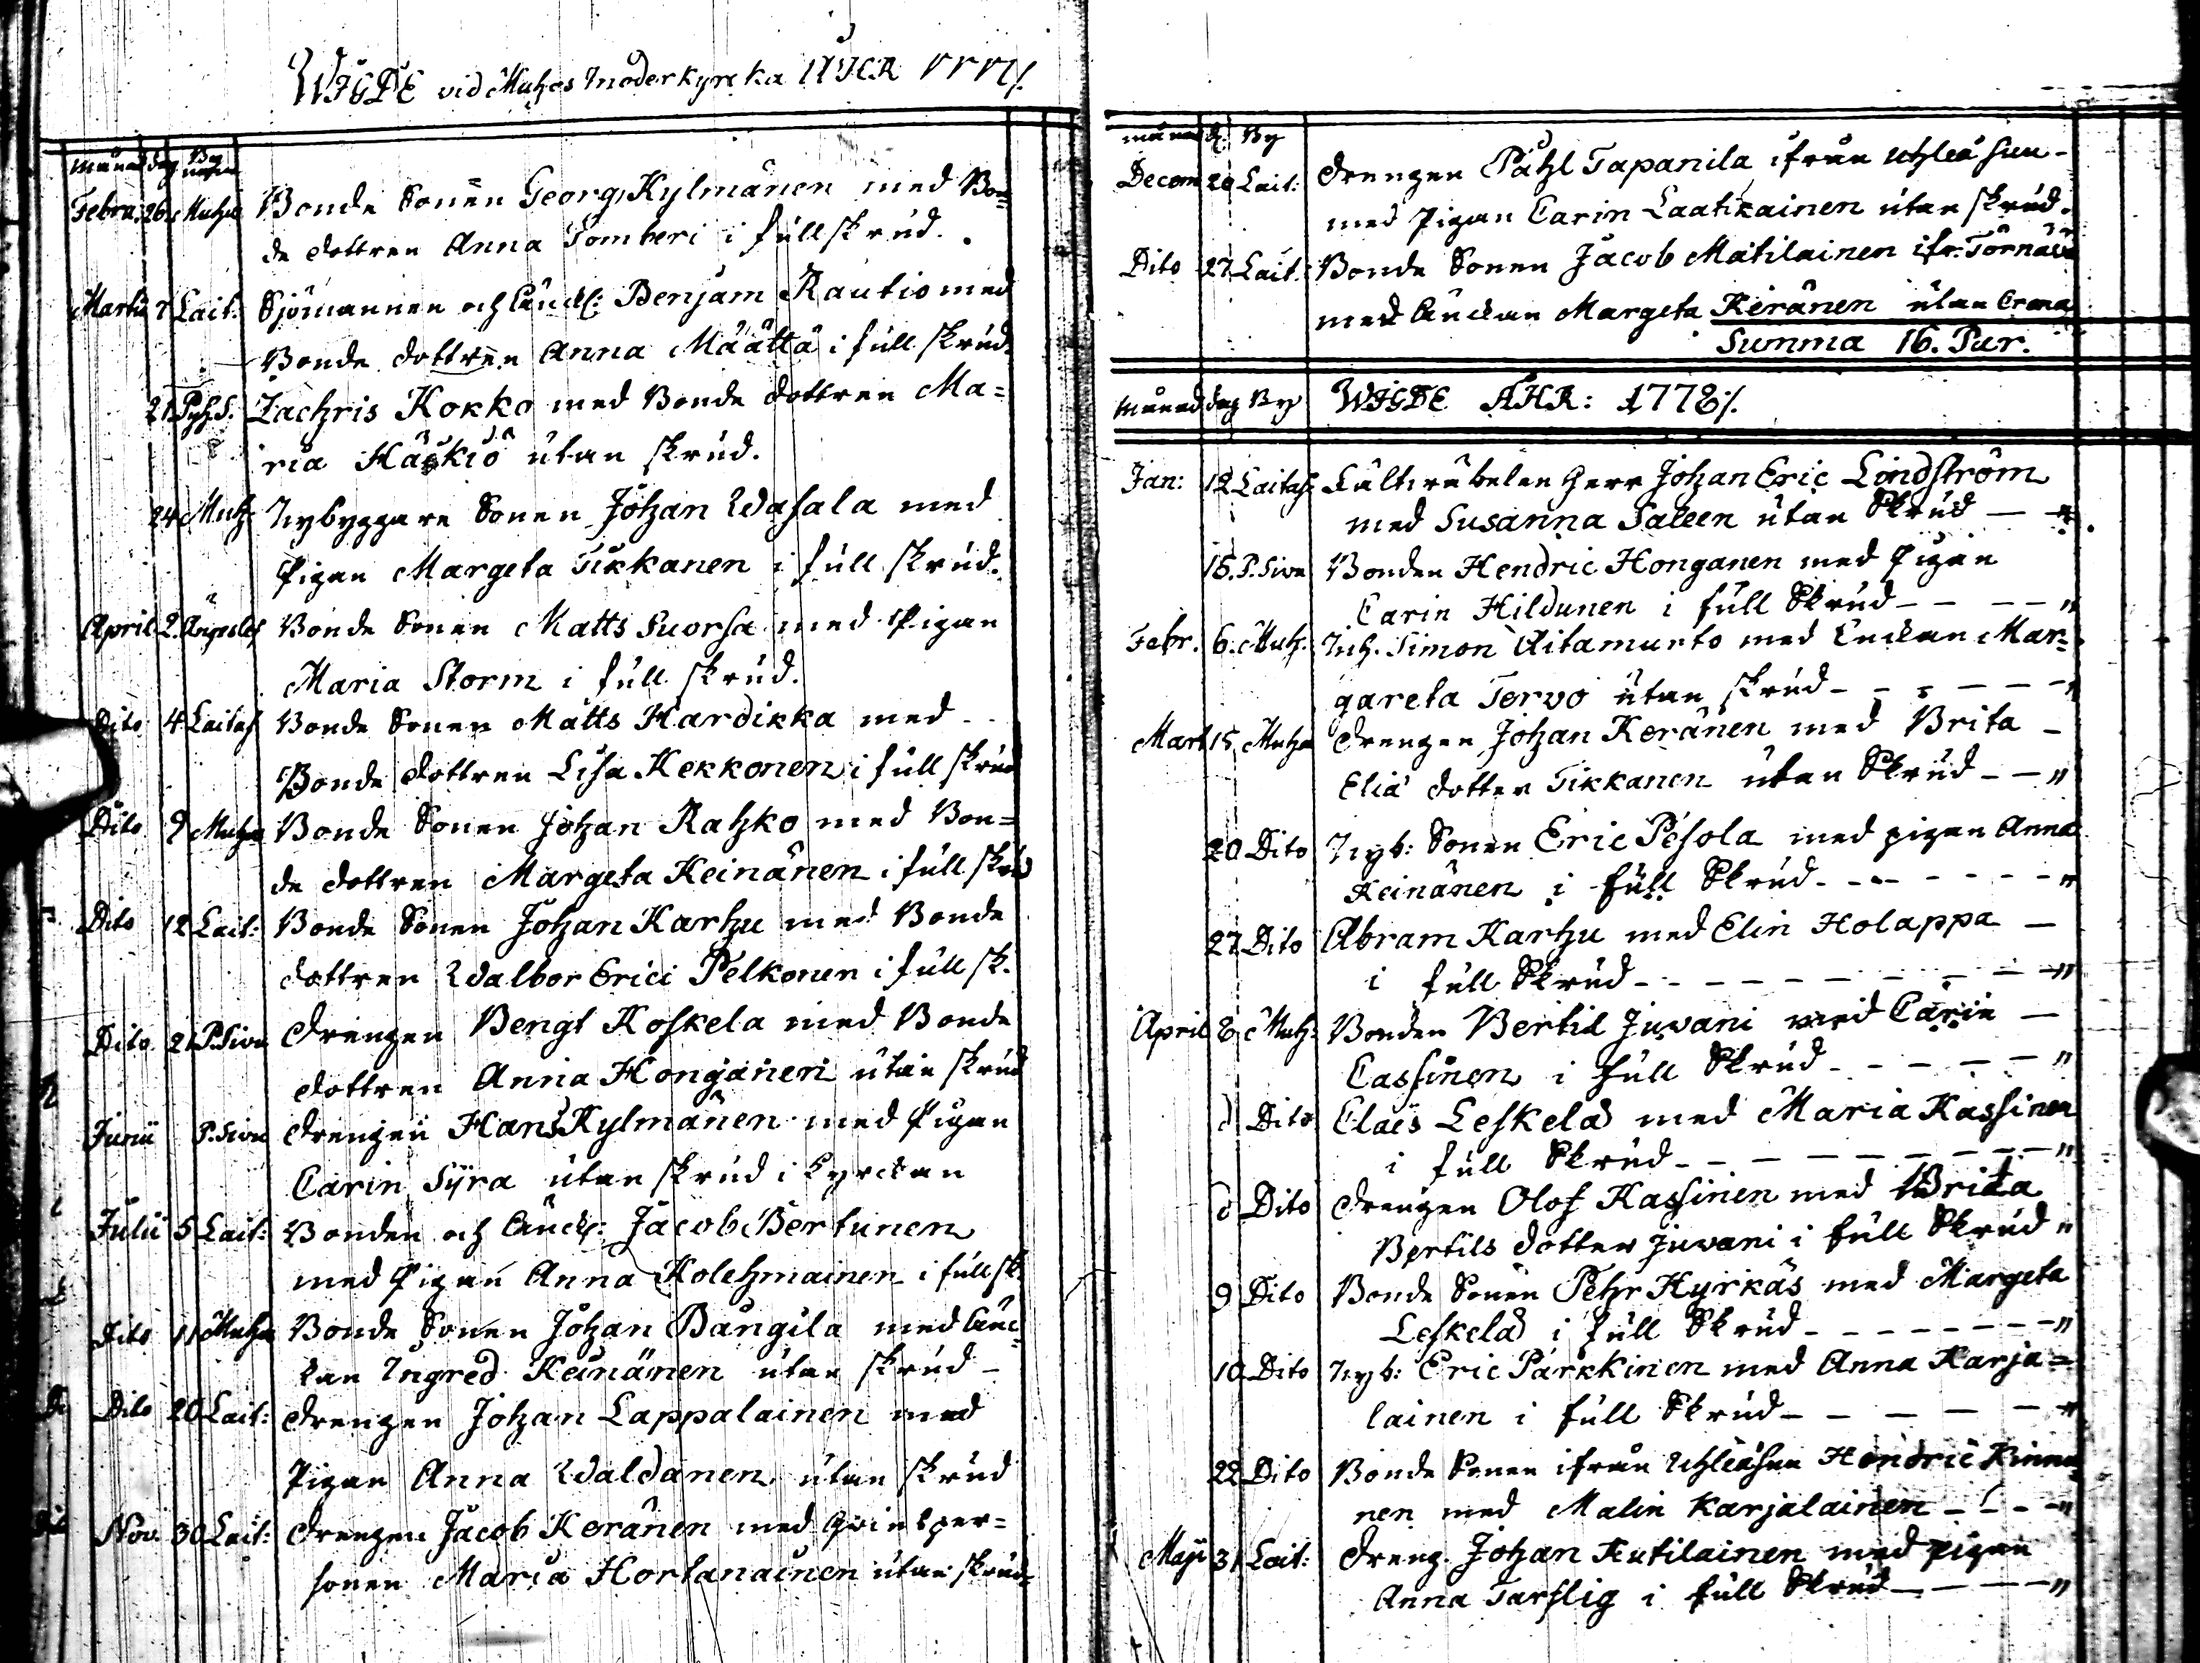 WIGDE vid Muhos Moderkyrcka ÅHR 1777 /.
månad dag By namn
Febru: 26. Muhos Bonde Sonen Georg Kylmänen med Bon=
de dottren Anna Tomberi i full skrud.
Martii 7 Lait: Sjömannen och Enckl: Benjam Rautio med
Bonde dottren Anna Määttä i full skrud.
21 Pyh S. Zachris Kokko med Bonde dottren Ma=
ria Häskiö utan skrud.
24 Muh: Nybyggare Sonen Johan Wasala med
Pigan Margeta Tikkanen i full skrud.
April 2. Bonde Sonen Matts Suorsa med Pigan
Maria Storm i full skrud.
Dito 4 Laitas Bonde Sonen Matts Hardikka med
Bonde dottren Lisa Kekkonen i full skrud
Dito 9 Muhos Bonde Sonen Johan Rahko med Bon=
de dottren Margeta Keinänen i full skrud
Dito 12 Lait: Bonde Sonen Johan Karhu med Bonde
dottren Walbor Erici Pelkonen i full sk.
Dito 21 P. Siwu Drengen Bengt Koskela med Bonde
dottren Anna Honganen utan skrud
Junii P. Siwu Drengen Hans Kylmänen med Pigan
Carin Syra utan skrud i Kyrckan
Julii 5 Lait: Bonden och Enckl: Jacob Bertunen
med Pigan Anna Kolehmainen i full sk.
Dito 11 Muhos Bonde Sonen Johan Bångila med Enc=
kan Ingred Keinänen utan skrud -
Dito 20 Lait: Drengen Johan Lappalainen med
Pigan Anna Waldanen utan skrud
Nov. 30 Lait: Drengen Jacob Keränen med Qvinsper=
sonen Maria Hortanainen utan skrud.
månad d. By
Decem 20 Lait: Drengen Påhl Tapanila ifrån Uhleå Sun-
med Pigan Carin Laatikainen utan skrud.
Dito 27 Lait: Bonde Sonen Jacob Matilainen ifr. Törnävä
med Enckan Margeta Keränen utan Crona
Summa 16. Par.
månad dag By WIGDE ÅHR: 1778 /.
Jan: 12 Laitas: Herr Johan Eric Lindström
med Susanna Saleen utan Skrud - - ".
15. P. Siwu Bonden Hendric Honganen med Pigan
Carin Hildunen i full Skrud - - - - "
Febr. 6. Muh: Inh. Simon Aitamurto med Enckan Mar=
gareta Torvo utan skrud - - - - - - "
Mart 15 Muhos Drengen Johan Keränen med Brita -
Eliä dotter Tikkanen utan Skrud - - "
20 Dito Nyb: Sonen Eric Pesola med pigan Anna
Keinänen i full Skrud - - - - - - - "
27 Dito Abram Karhu med Elin Holappa -
i full Skrud - - - - - - - - - "
April 8 Muh: Bonden Bertil Juwani med Carin -
Cassinen i full Skrud - - - - - "
d Dito Claës Leskelä med Maria Kassinen
i full Skrud - - - - - - - - - "
d Dito Drengen Olof Kassinen med Brita
Bertils dotter Juwani i full Skrud "
9 Dito Bonde Sonen Pehr Hyrkäs med Margeta
Leskelä i full Skrud - - - - - - - - "
10 Dito Nyb: Eric Parkkinen med Anna Karja=
lainen i full Skrud - - - - - - "
22 Dito Bonde Sonen ifrån Uhleåsun Hendric Kinnu=
nen med Malin Karjalainen - - - - "
Maji 31 Lait: Dreng. Johan Kutilainen med pigan
Anna Tarslig i full Skrud - - - - "